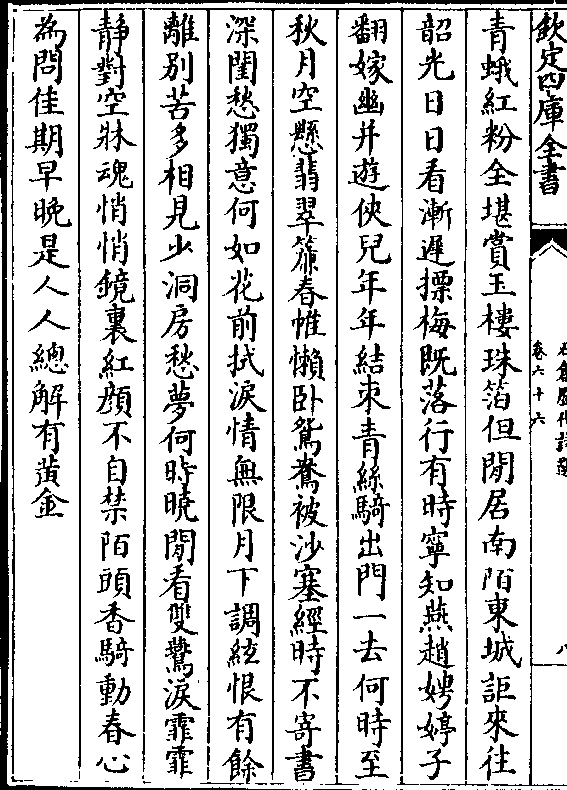 欽定四庫全書
石倉歷代詩選
卷六十六
八
青蛾紅粉全堪賞玉樓珠箔但閒居南陌東城詎來往
韶光日日看漸遲摽梅既落行有時寧知燕趙娉婷子
翻嫁幽并遊俠兒年年結束青絲騎出門一去何時至
秋月空懸翡翠簾春帷懶卧鴛鴦被沙塞經時不寄書
深閨愁獨意何如花前拭淚情無限月下調絃恨有餘
離別苦多相見少洞房愁夢何時曉閒看雙鷰淚霏霏
静對空牀魂悄悄鏡裏紅顔不自禁陌頭香騎動春心
為問佳期早晚是人人總解有黄金